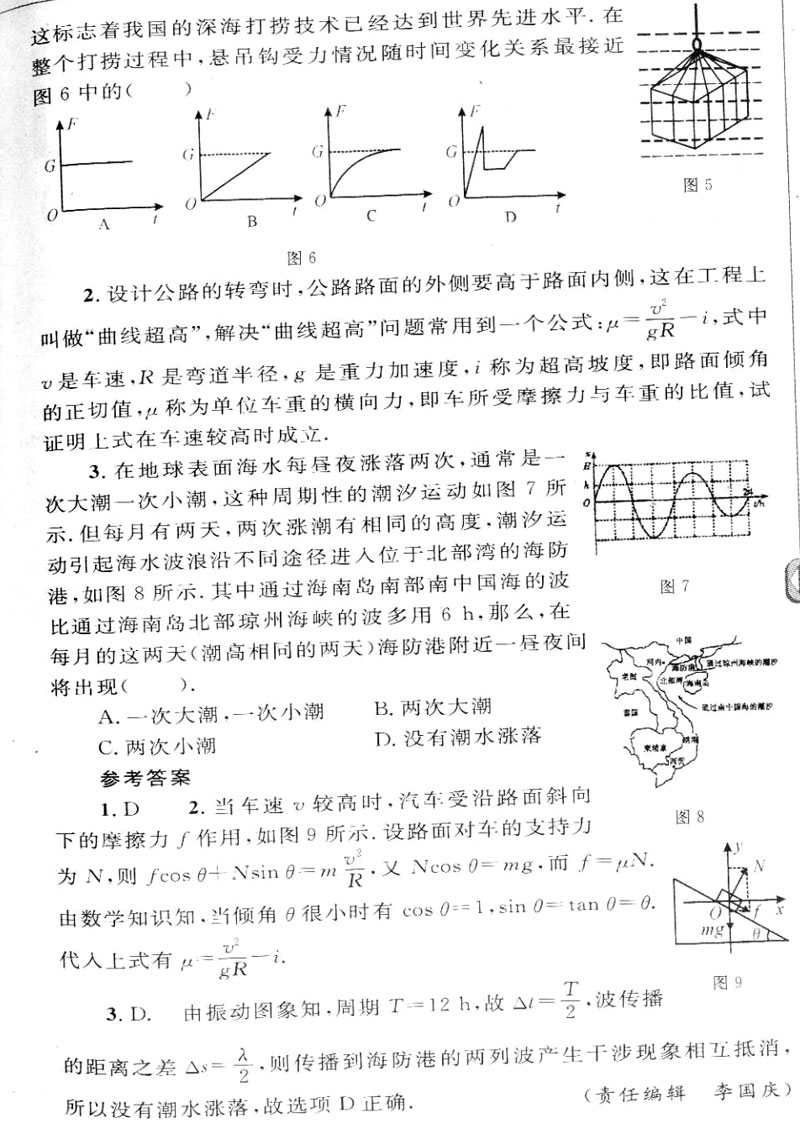 这标志着我国的深海打捞技术已经达到世界先进水平.在
整个打捞过程中,悬吊钩受力情况随时间变化关系最接近
图 6 中的(　　)
F
G
O
t
A
F
G
O
t
B
F
G
O
t
C
F
G
O
t
D
图 5
图 6
2. 设计公路的转弯时,公路路面的外侧要高于路面内侧,这在工程上
叫做“曲线超高”,解决“曲线超高”问题常用到一个公式:μ=v²/gR−i,式中
v 是车速,R 是弯道半径,g 是重力加速度,i 称为超高坡度,即路面倾角
的正切值,μ 称为单位车重的横向力,即车所受摩擦力与车重的比值,试
证明上式在车速较高时成立.
3. 在地球表面海水每昼夜涨落两次,通常是一
次大潮一次小潮,这种周期性的潮汐运动如图 7 所
示.但每月有两天,两次涨潮有相同的高度,潮汐运
动引起海水波浪沿不同途径进入位于北部湾的海防
港,如图 8 所示.其中通过海南岛南部南中国海的波
比通过海南岛北部琼州海峡的波多用 6 h,那么,在
每月的这两天(潮高相同的两天)海防港附近一昼夜间
将出现(　　).
A. 一次大潮,一次小潮　　B. 两次大潮
C. 两次小潮　　D. 没有潮水涨落
x
H
h
O
24
t/h
图 7
中国
河内
海防港
通过琼州海峡的潮汐
老挝
北部湾
海南岛
泰国
通过南中国海的潮汐
柬埔寨
图 8
参考答案
1. D　2. 当车速 v 较高时,汽车受沿路面斜向
下的摩擦力 f 作用,如图 9 所示.设路面对车的支持力
为 N,则 fcos θ+Nsin θ=m v²/R,又 Ncos θ=mg,而 f=μN.
由数学知识知,当倾角 θ 很小时有 cos θ=1,sin θ=tan θ=θ.
代入上式有 μ=v²/gR−i.
y
N
O
f
x
mg
θ
图 9
3. D.　由振动图象知,周期 T=12 h,故 Δt=T/2,波传播
的距离之差 Δs=λ/2,则传播到海防港的两列波产生干涉现象相互抵消,
所以没有潮水涨落,故选项 D 正确.　　(责任编辑　李国庆)